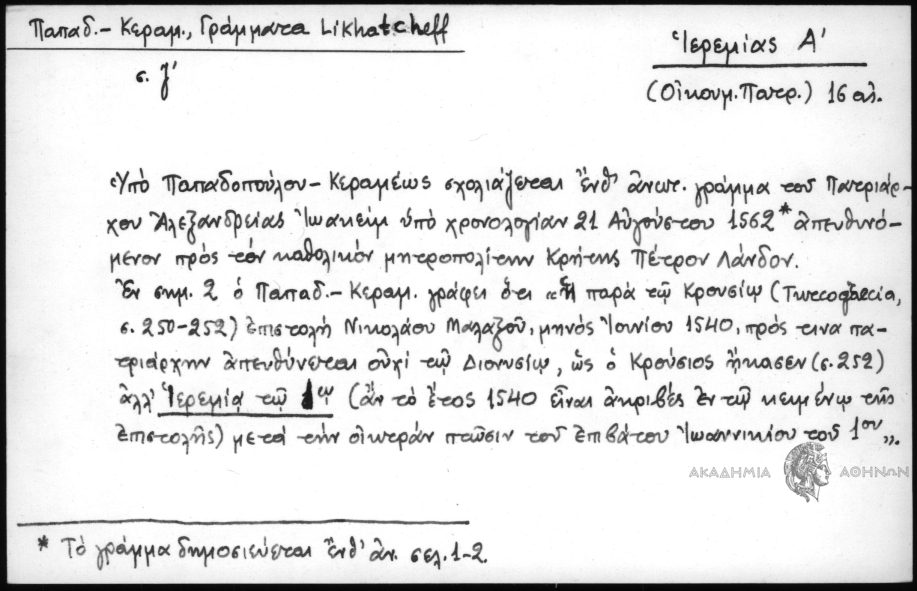 Παπαδ.- Κεραμ., Γράμματα Likhatcheff
σ. ζ'
Ἱερεμίας Α'
(Οἰκουμ. Πατρ.) 16 αἰ.
Ὑπὸ Παπαδοπούλου - Κεραμέως σχολιάζεται ἔνθ' ἀνωτ. γράμμα τοῦ Πατριάρ-
χου Ἀλεξανδρείας Ἰωακεὶμ ὑπὸ χρονολογίαν 21 Αὐγούστου 1562* ἀπευθυνό-
μενον πρὸς τὸν καθολικὸν μητροπολίτην Κρήτης Πέτρον Λάνδον.
Ἐν σημ. 2 ὁ Παπαδ.- Κεραμ. γράφει ὅτι «Ἡ παρὰ τῷ Κρουσίῳ (Turcograecia,
σ. 250-252) ἐπιστολὴ Νικολάου Μαλαξοῦ, μηνὸς Ἰουνίου 1540, πρὸς τινα πα-
τριάρχην ἀπευθύνεται οὐχὶ τῷ Διονυσίῳ, ὡς ὁ Κρούσιος ἤκασεν (σ. 252)
ἀλλ' Ἱερεμίᾳ τῷ 1ῳ (ἂν τὸ ἔτος 1540 εἶναι ἀκριβὲς ἐν τῷ κειμένῳ τῆς
ἐπιστολῆς) μετὰ τὴν οἰκτρὰν πτῶσιν τοῦ ἐπιβάτου Ἰωαννικίου τοῦ 1ου».
ΑΚΑΔΗΜΙΑ ΑΘΗΝΩΝ
* Τὸ γράμμα δημοσιεύεται ἔνθ' ἀν. σελ. 1-2.